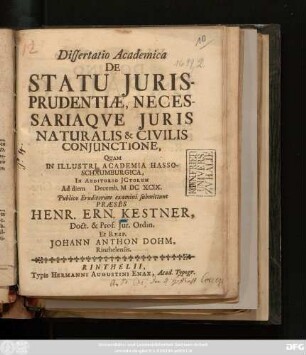 Dissertatio Academica
DE
STATU JURIS-
PRUDENTIÆ, NECES-
SARIAQVE JURIS
NATURALIS & CIVILIS
CONJUNCTIONE,
QUAM
IN ILLUSTRI ACADEMIA HASSO-
SCHAUMBURGICA,
In Auditorio JCtorum
Ad diem Decemb. M DC XCIX.
Publico Eruditorum examini submittunt
PRÆSES
HENR. ERN. KESTNER,
Doct. & Prof. Jur. Ordin.
Et Resp.
JOHANN ANTHON DOHM,
Rinthelensis.
RINTHELII,
Typis HERMANNI AUGUSTINI ENAX, Acad. Typogr.